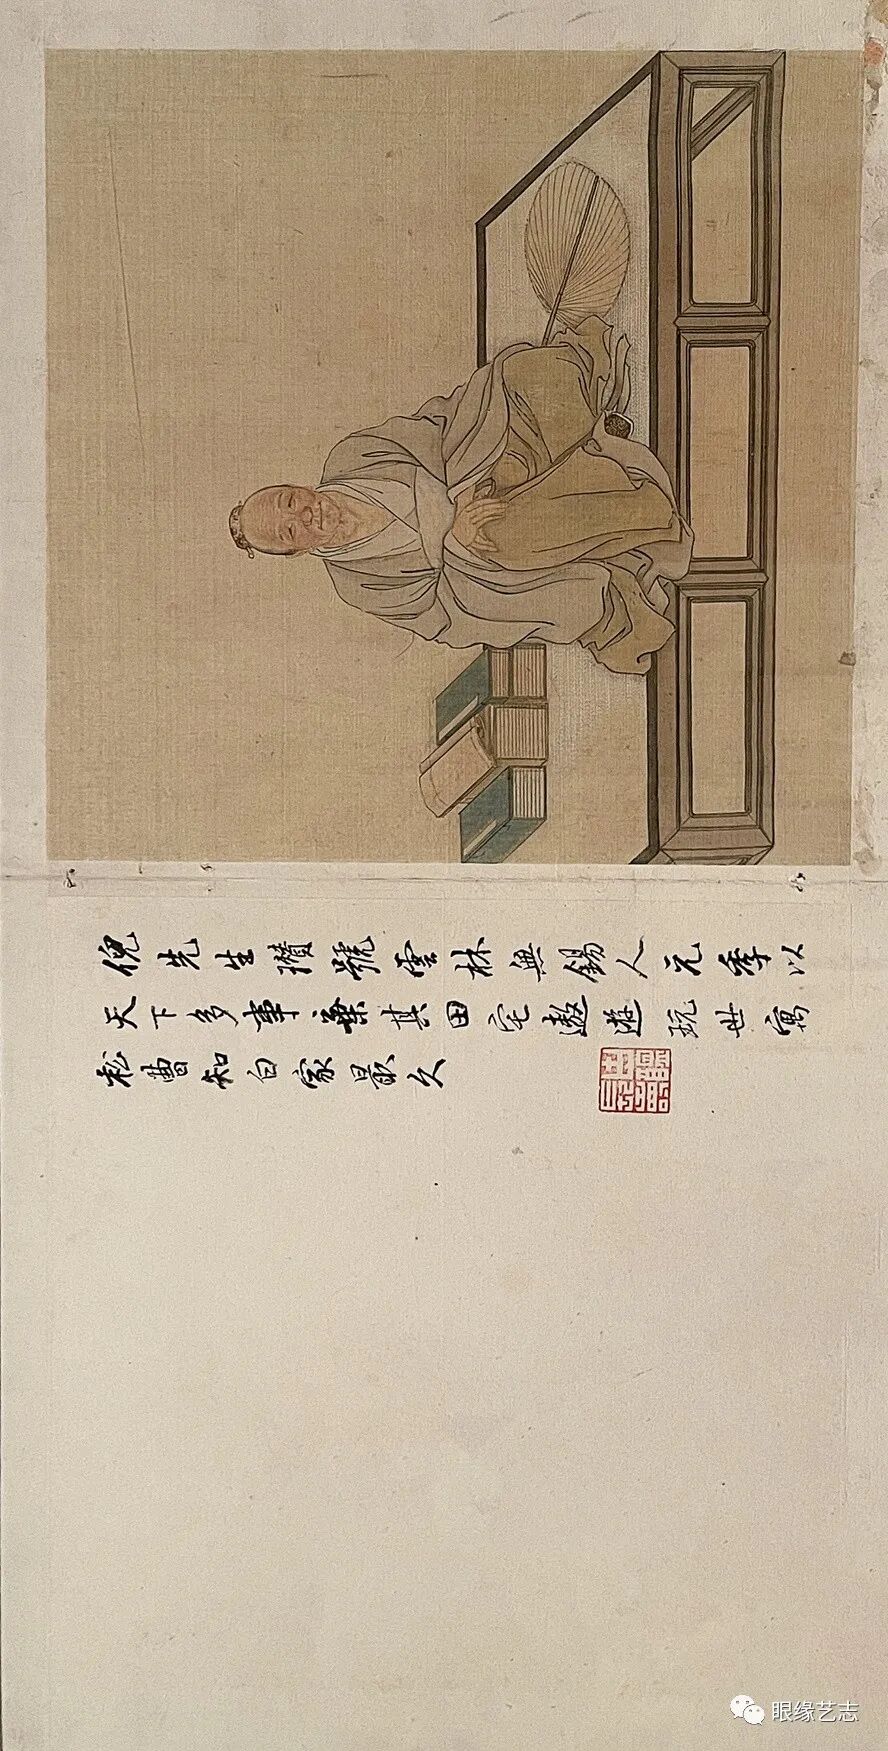 倪先生瓚號雲林無錫人元季以
天下多事棄其田宅遨遊玩世寓
松曹知白家最久
眼缘艺志